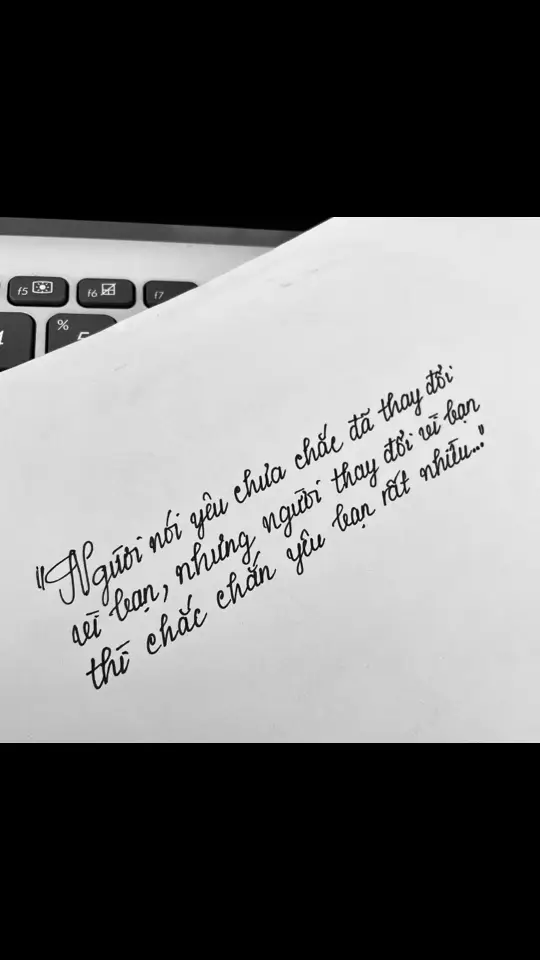 f5 f6 f7
%
"Người nói yêu chưa chắc đã thay đổi
vì bạn, nhưng người thay đổi vì bạn
thì chắc chắn yêu bạn rất nhiều..."